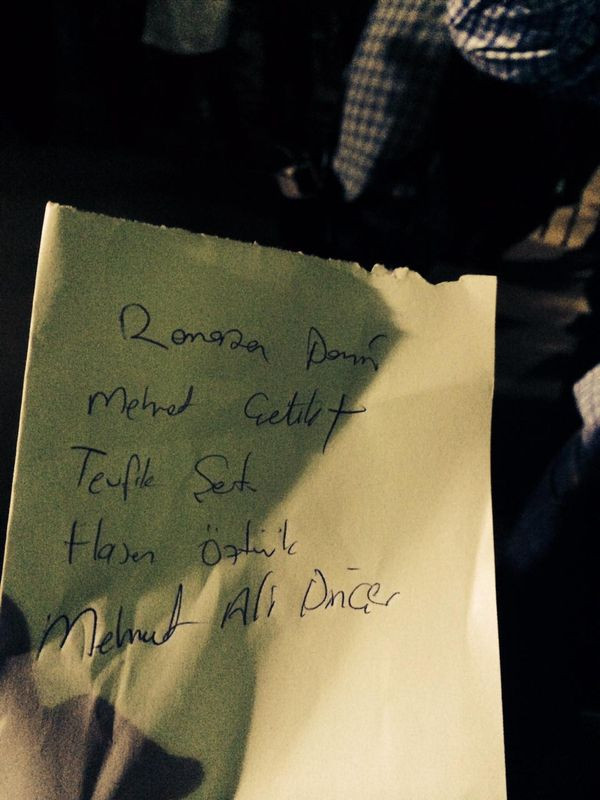 Ramazan Demir
Mehmet
Tevfik
Hasan Öztürk
Mehmet Ali Dinçer